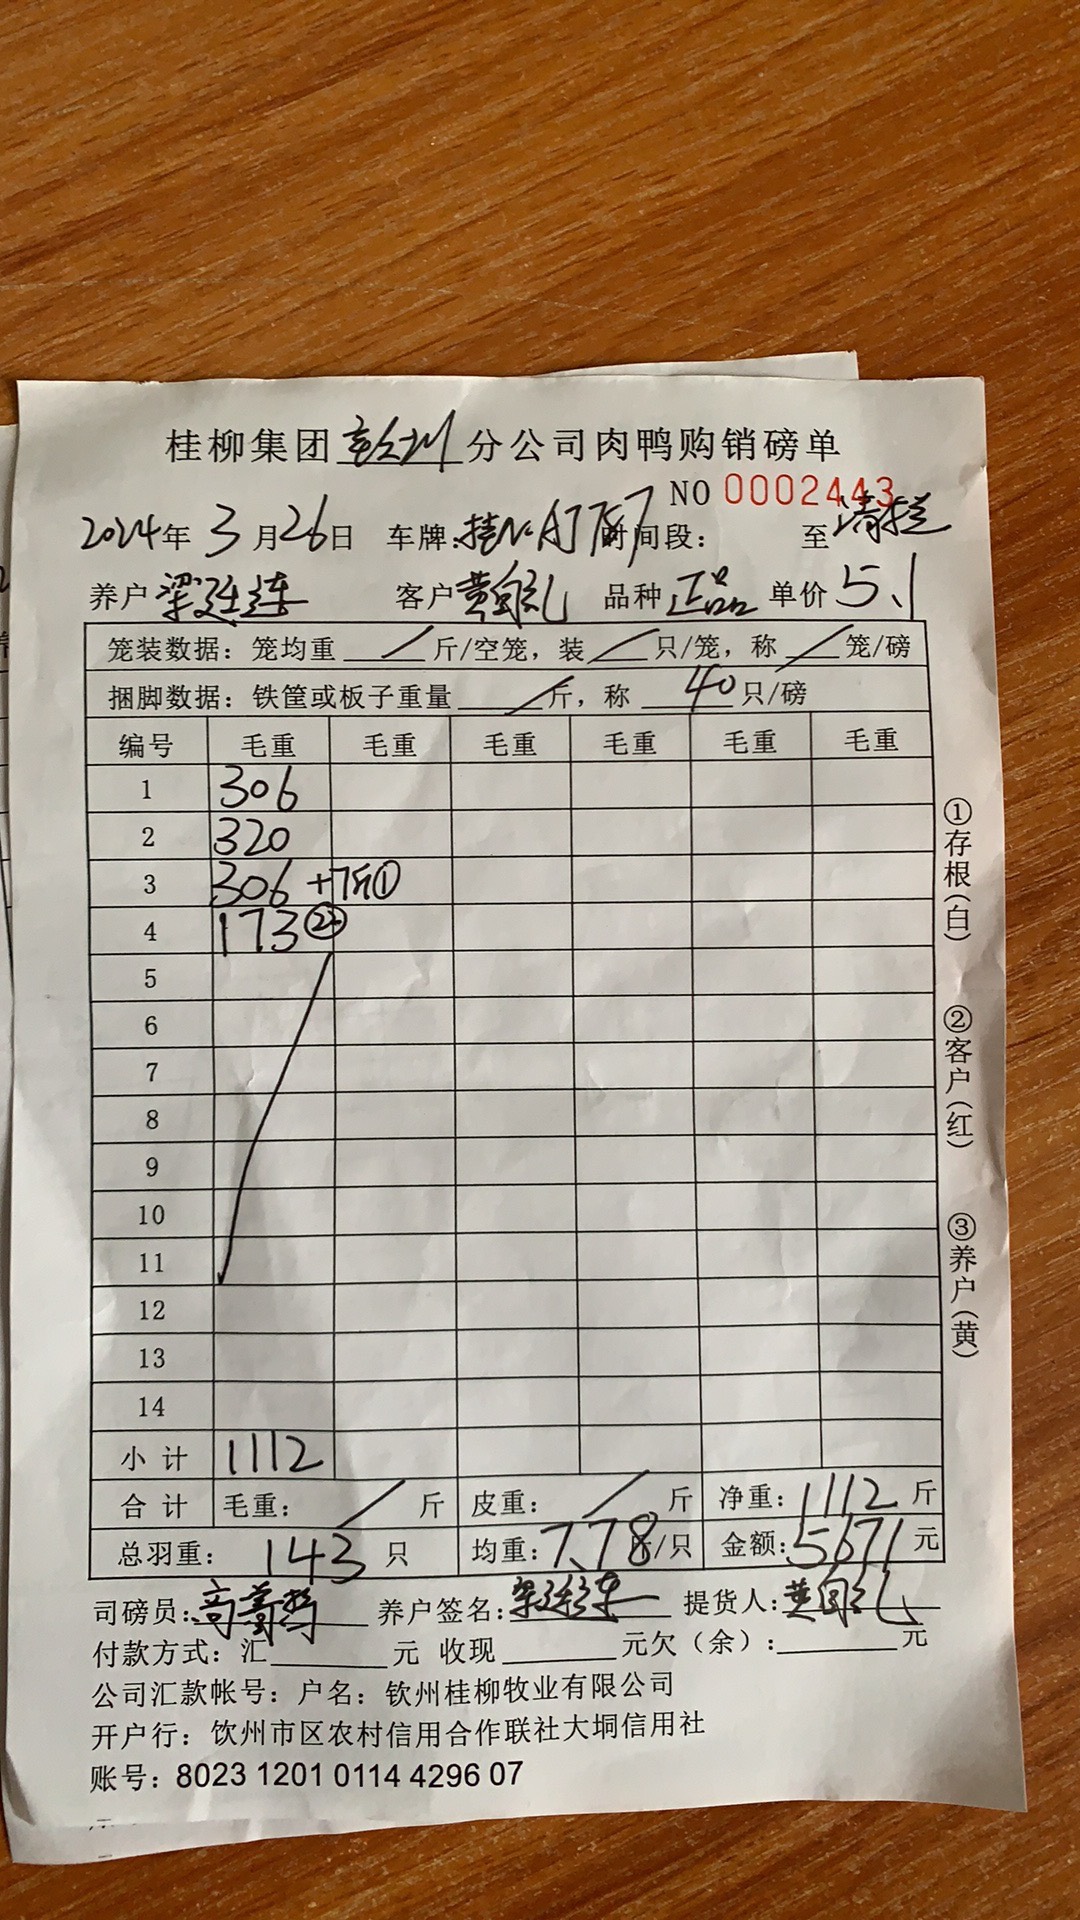 桂柳集团钦州分公司肉鸭购销磅单
NO 0002443
2024年3月26日 车牌:桂N·A7787 时间段: 至清栏
养户梁廷连 客户黄自礼 品种正品 单价5.1
笼装数据:笼均重/斤/空笼,装/只/笼,称/笼/磅
捆脚数据:铁筐或板子重量/斤,称40只/磅
编号 毛重 毛重 毛重 毛重 毛重 毛重
1 306
2 320
3 306+7斤①
4 173㉒
5
6
7
8
9
10
11
12
13
14
小计 1112
合计 毛重:/斤 皮重:/斤 净重:1112斤
总羽重:143只 均重:7.78斤/只 金额:5671元
司磅员: 养户签名:梁廷连 提货人:黄自礼
付款方式:汇______元 收现______元欠(余):______元
公司汇款帐号:户名:钦州桂柳牧业有限公司
开户行:饮州市区农村信用合作联社大垌信用社
账号:8023 1201 0114 4296 07
①存根(白)
②客户(红)
③养户(黄)